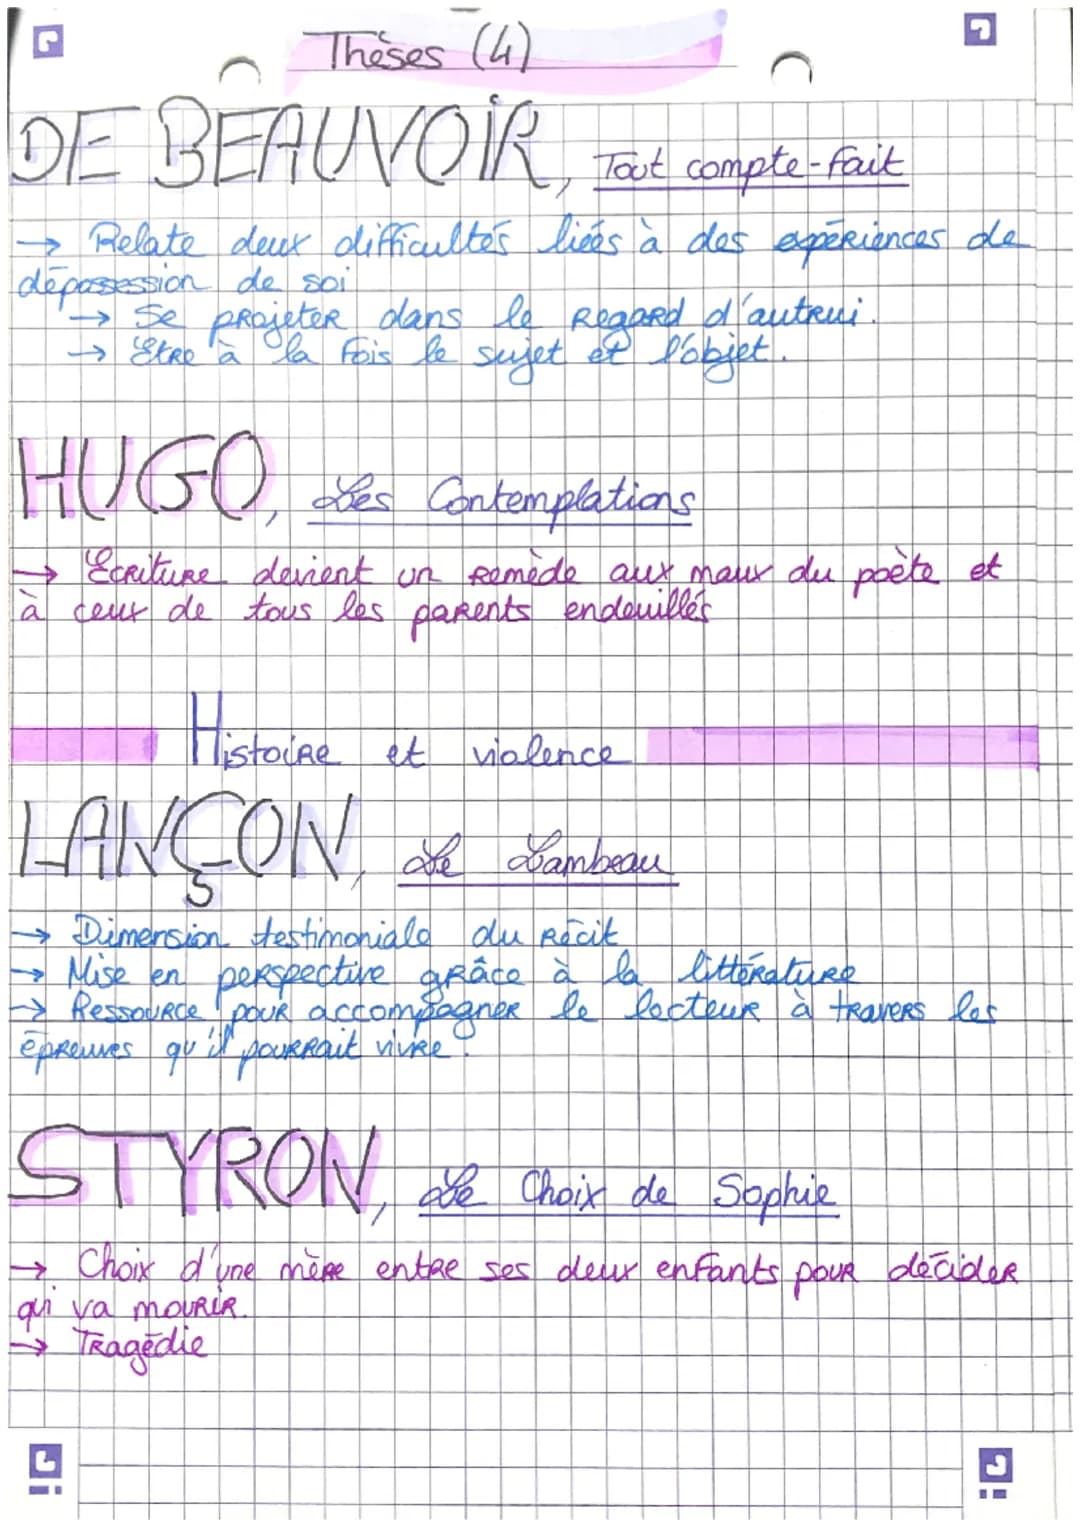 Thèses (4)
DE BEAUVOIR, Tout compte-fait
→ Relate deux difficultés liées à des expériences de
dépossession de soi
→ Se projeter dans le regard d'autrui.
→ Etre à la fois le sujet et l'objet.
HUGO, Les Contemplations
→ Ecriture devient un remède aux maux du poète et
à ceux de tous les parents endeuillés
Histoire et violence
LANÇON, Le Lambeau
→ Dimension testimoniale du récit
→ Mise en perspective grâce à la littérature
→ Ressource pour accompagner le lecteur à travers les
épreuves qu'il pourrait vivre.
STYRON, Le Choix de Sophie
→ Choix d'une mère entre ses deux enfants pour décider
qui va mourir.
→ Tragédie